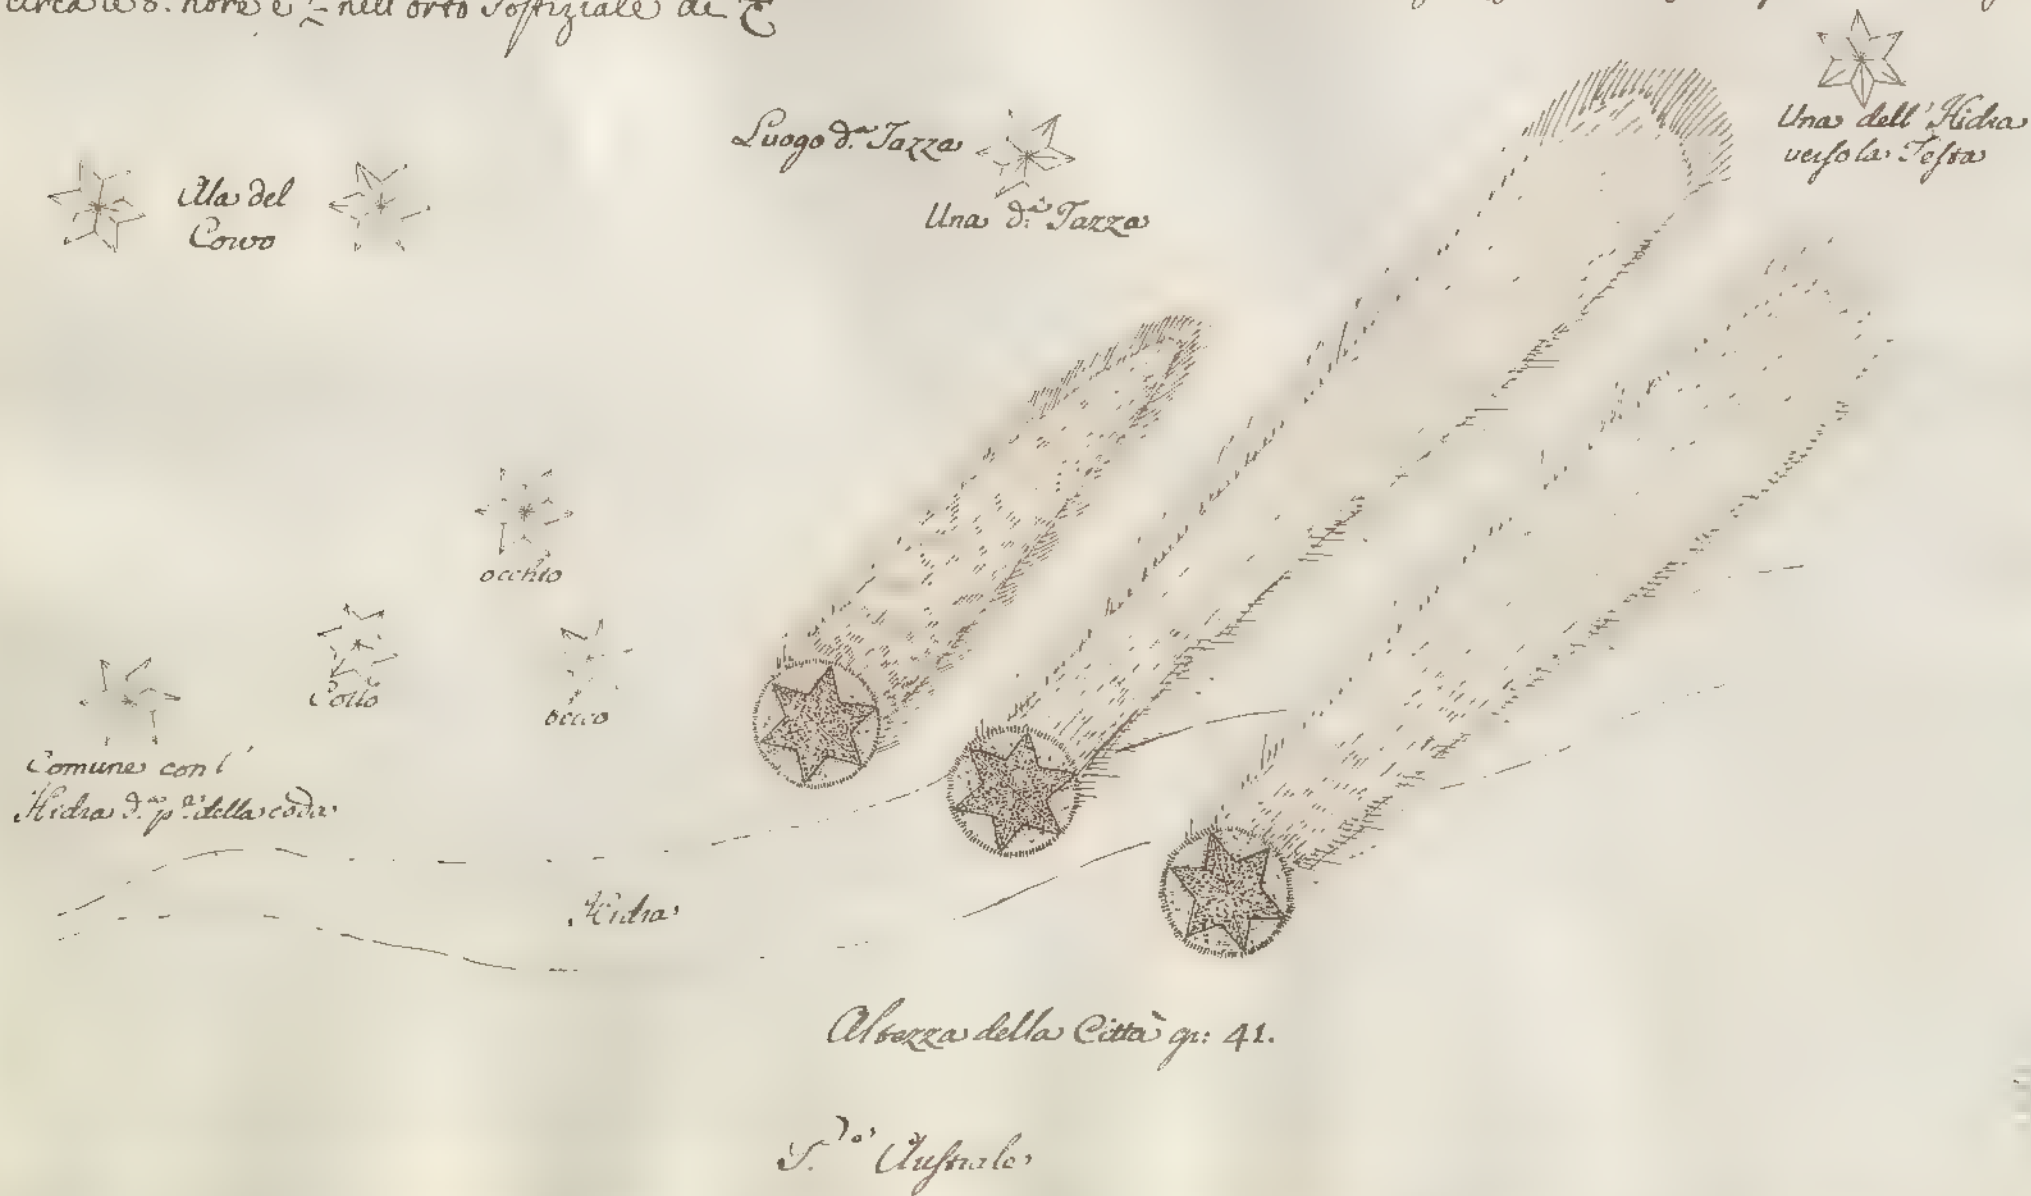 circa le 8. hore e ½ nell'orto solstiziale di
Una dell'Hidra
verso la Testa
Luogo d.ª Tazza
Una d.ª Tazza
Ala del
Corvo
occhio
Collo
becco
Comune con l'
Hidra d.ª p.ª della coda
Hidra
Altezza della Città gr: 41.
Australe